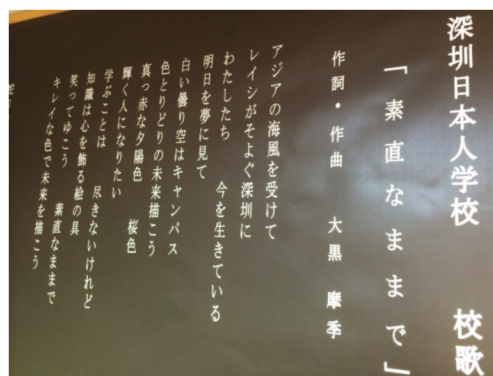 深圳日本人学校 校歌
「素直なままで」
作詞・作曲 大黒 摩季
アジアの海風を受けて
レイシがそよぐ深圳に
わたしたち 今を生きている
明日を夢に見て
白い曇り空はキャンバス
色とりどりの未来描こう
真っ赤な夕陽色 桜色
輝く人になりたい
学ぶことは 尽きないけれど
知識は心を飾る絵の具
笑ってゆこう 素直なままで
キレイな色で未来を描こう